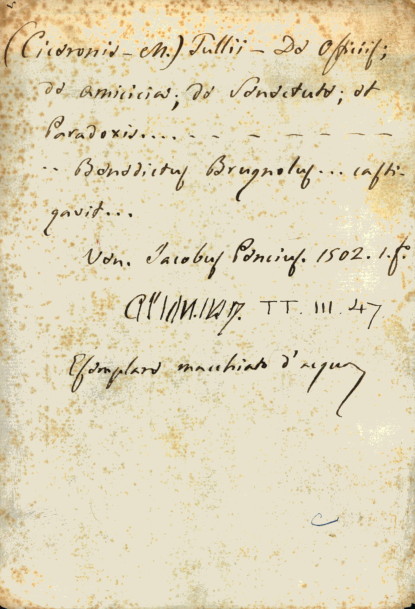 (Ciceronis – M.) Tullii – De Officiis;
de amicicia; de Senectute; et
Paradoxis.... – – – – – –
.. Benedictus Brugnolus... casti-
gavit...
Ven. Jacobus Pencius. 1502. i. f.
TT. III. 47
Esemplare macchiato d'acqua